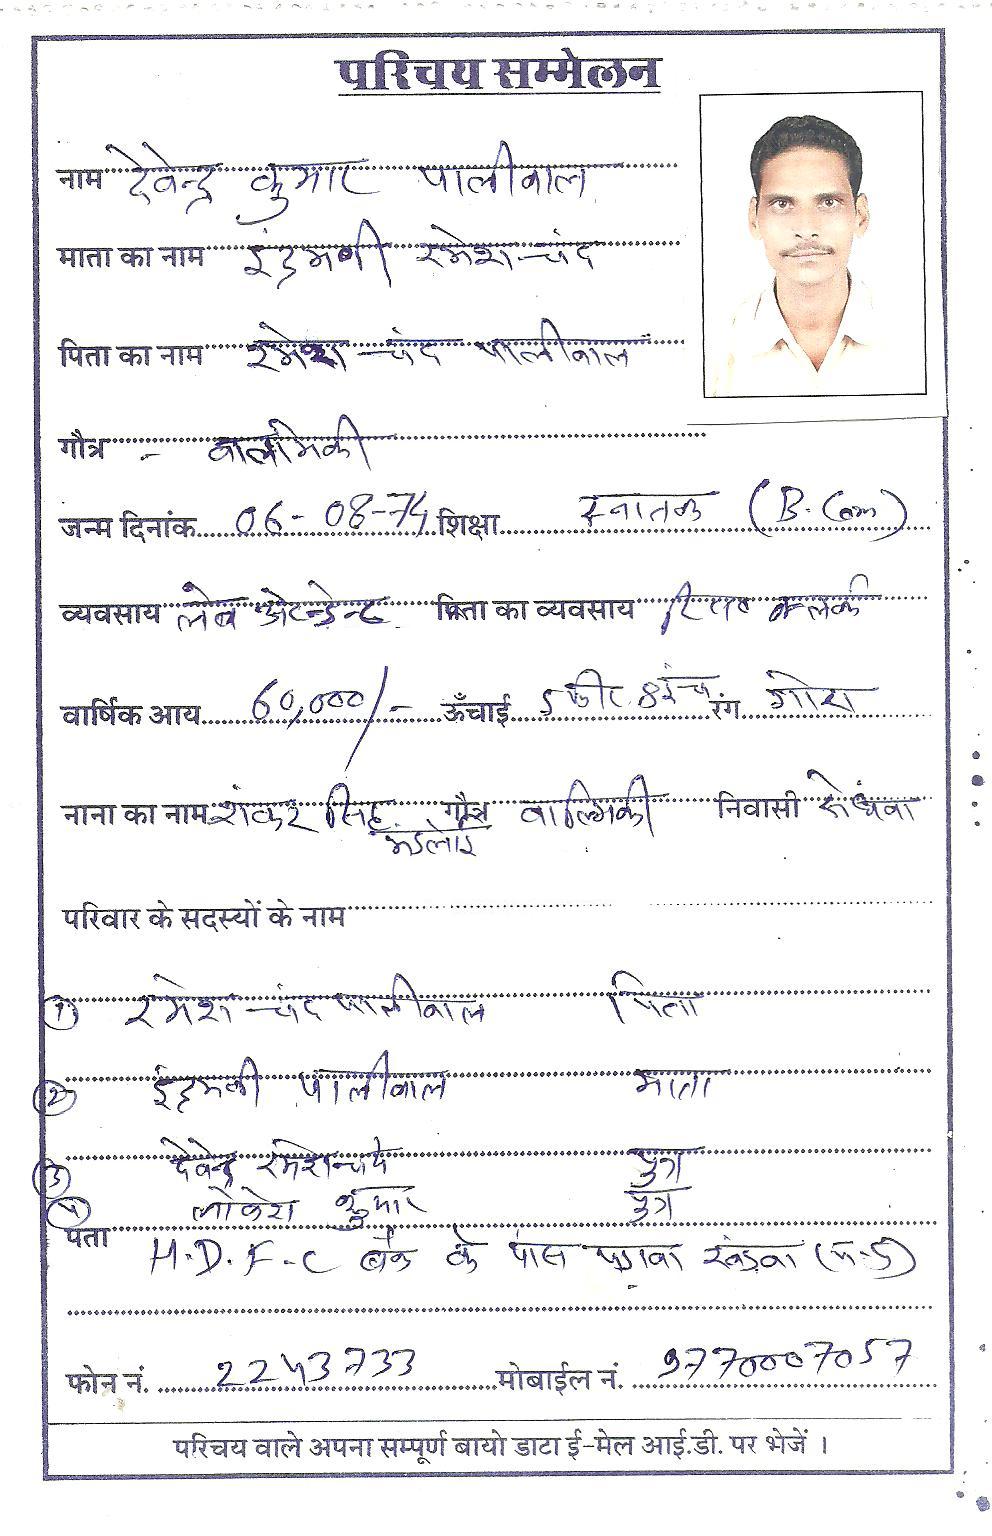 परिचय सम्मेलन
नाम देवेन्द्र कुमार पालीवाल
माता का नाम इंद्रमणी रमेश चंद
पिता का नाम रमेश चंद पालीवाल
गौत्र - वाल्मिकी
जन्म दिनांक 06-08-74 शिक्षा स्नातक (B.Com)
व्यवसाय लेब अटेन्डेन्ट पिता का व्यवसाय क्लर्क
वार्षिक आय 60,000/- ऊँचाई 5 फीट 8 इंच रंग गोरा
नाना का नाम शंकर सिंह गौत्र वाल्मिकी निवासी सेंधवा
परिवार के सदस्यों के नाम
1) रमेश चंद पालीवाल पिता
2) इंद्रमणी पालीवाल माता
3) देवेन्द्र रमेशचंद पुत्र
4) लोकेश कुमार पुत्र
पता H.D.F.C बैंक के पास पड़ावा खंडवा
फोन नं. 2243733 मोबाईल नं. 9770007057
परिचय वाले अपना सम्पूर्ण बायो डाटा ई-मेल आई.डी. पर भेजें ।